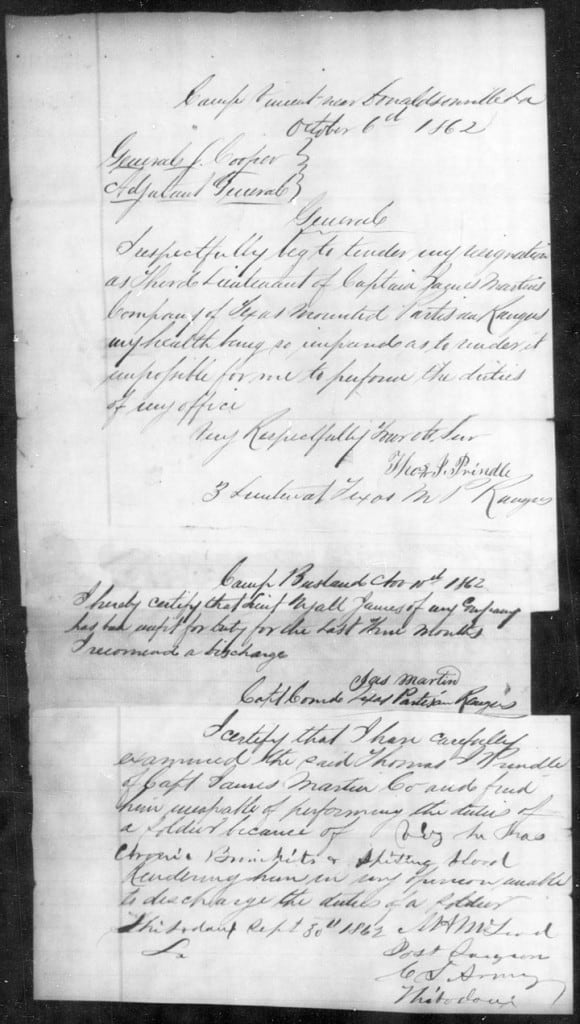 Camp Vincent near Donaldsonville La
October 6th 1862
General S. Cooper
Adjutant General
General
I respectfully beg to tender my resignation
as Third Lieutenant of Captain James Martins
Company of Texas Mounted Partisan Rangers
my health being so impaired as to render it
impossible for me to perform the duties
of my office
Very Respectfully Your Ob. Ser
Thos J. Prindle
3 Lieutenant Texas M P Rangers
Camp Nov 10th 1862
I hereby certify that James of my Company
has been unfit for duty for the last three months
I recomend a discharge
Jas Martin
Capt Comdg Texas Partisan Rangers
I certify that I have carefully
examined the said Thomas J Prindle
of Capt James Martin Co and find
him incapable of performing the duties of
a soldier because of viz he has
chronic Bronchitis & Spitting blood
Rendering him in my opinion unable
to discharge the duties of a soldier
Thibodaux Sept 30th 1862
La
McLeod
Post Surgeon
C S Army
Thibodaux